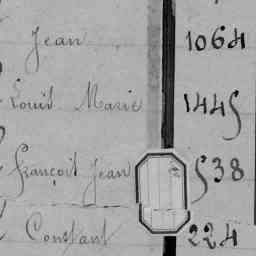 Jean 1064
Louis Marie 1445
François Jean 538
Constant 224